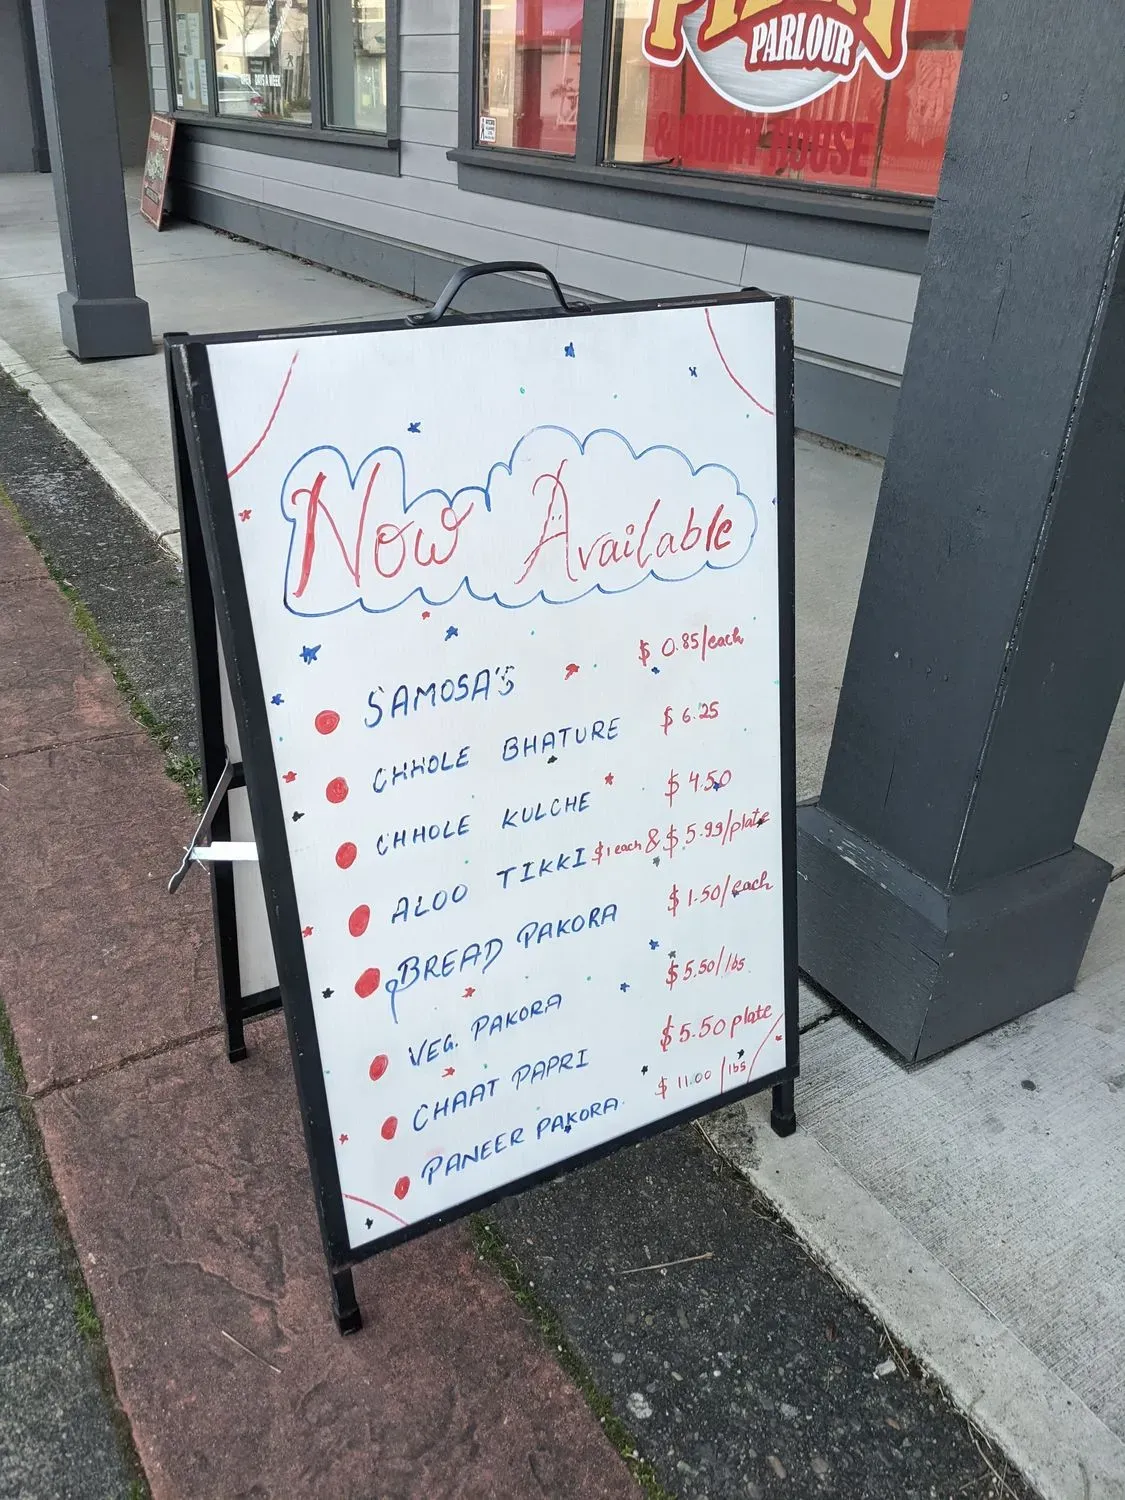 PARLOUR
& CURRY HOUSE
OPEN 7 DAYS A WEEK
Now Available
SAMOSA'S $ 0.85/each
CHHOLE BHATURE $ 6.25
CHHOLE KULCHE $ 4.50
ALOO TIKKI $1 each & $ 5.99/plate
BREAD PAKORA $ 1.50/each
VEG. PAKORA $ 5.50/lbs
CHAAT PAPRI $ 5.50 plate
PANEER PAKORA. $ 11.00 /lbs